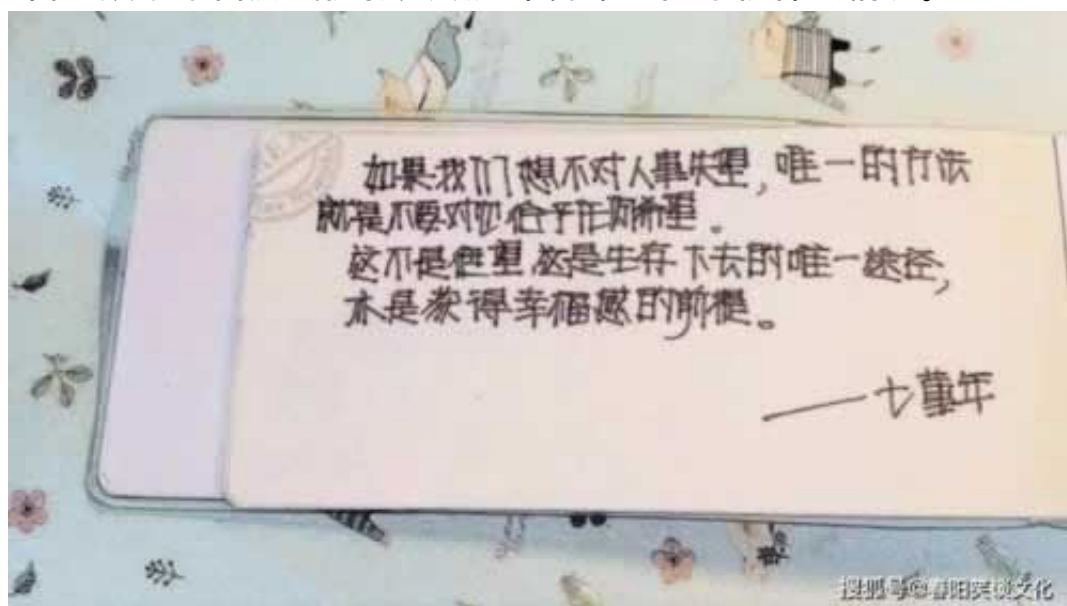 如果我们想不对人事失望，唯一的方法
就是不要对它给予任何希望。
这不是绝望，这是生存下去的唯一途径，
亦是获得幸福感的前提。
——七堇年
搜狐号@春阳笑谈文化